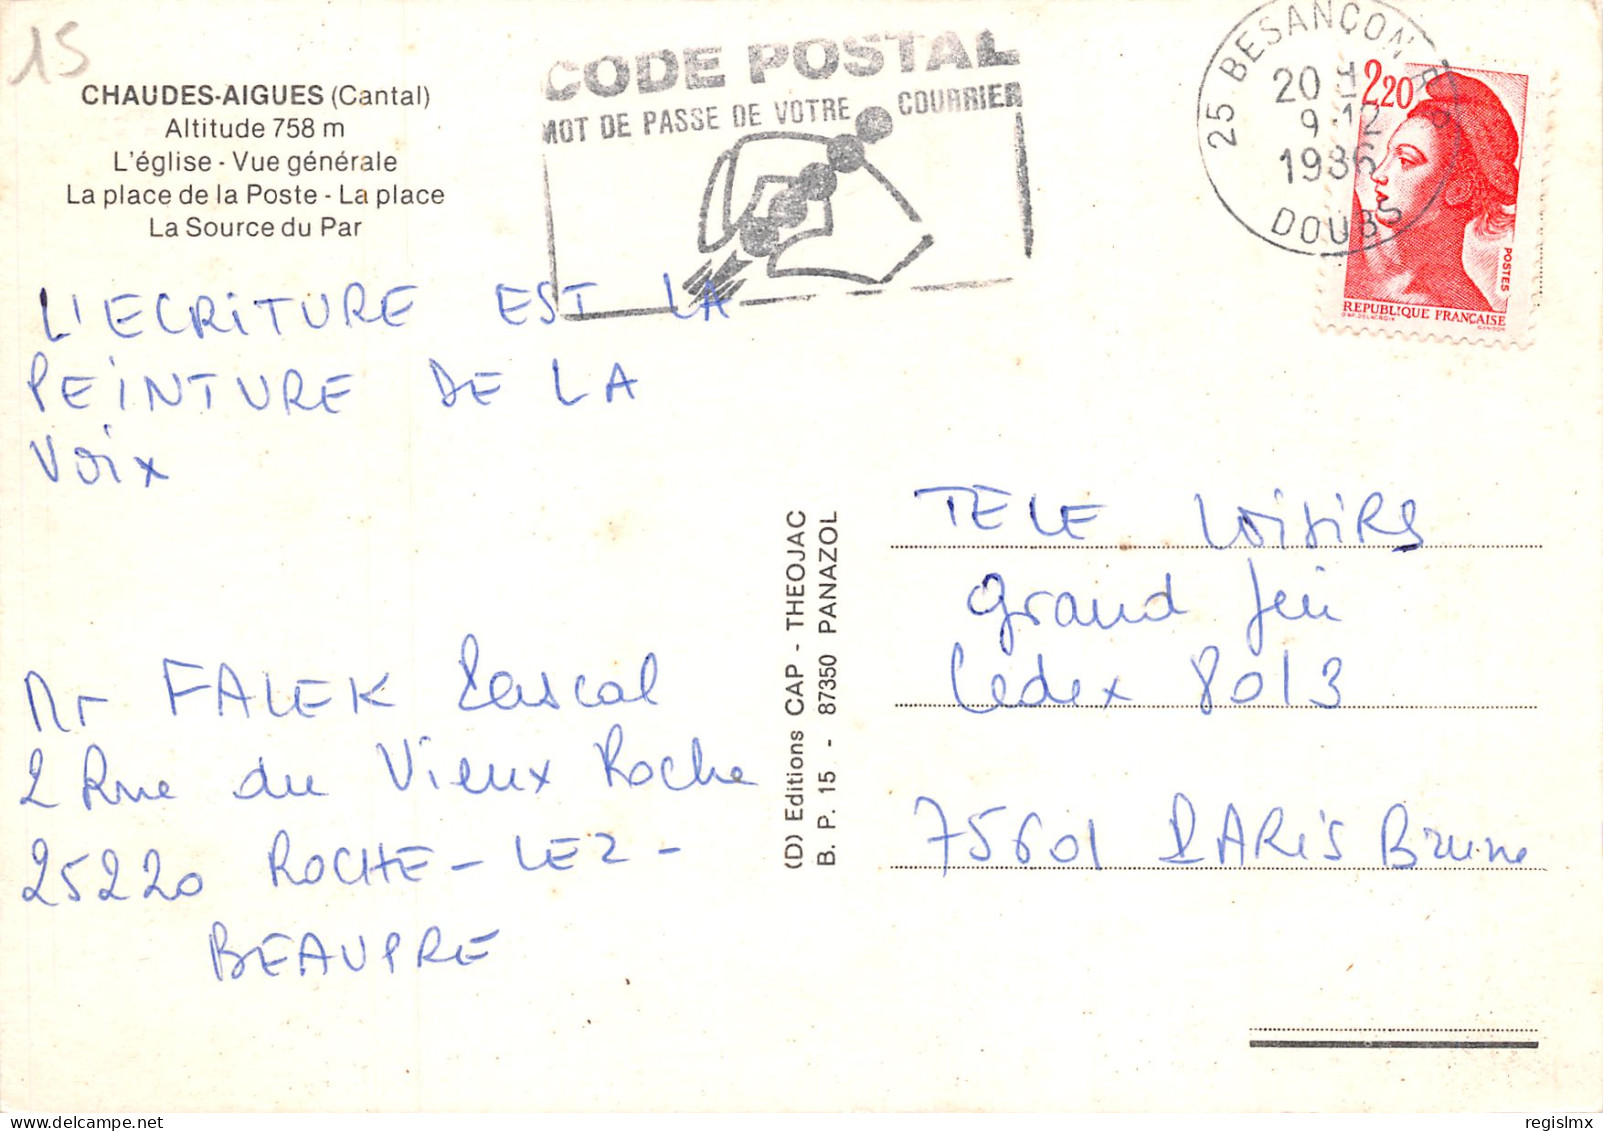 15
CHAUDES-AIGUES (Cantal)
Altitude 758 m
L'église - Vue générale
La place de la Poste - La place
La Source du Par
CODE POSTAL
MOT DE PASSE DE VOTRE COURRIER
25 BESANÇON
20 H
9-12
1986
DOUBS
2,20
POSTES
REPUBLIQUE FRANÇAISE
L'ECRITURE EST LA
PEINTURE DE LA
VOIX
Mr FALEK Pascal
2 Rue du Vieux Roche
25220 ROCHE-LEZ-
BEAUPRE
(D) Editions CAP - THEOJAC
B. P. 15 - 87350 PANAZOL
TELE LOISIRS
Grand Jeu
Cedex 8013
75601 PARIS Brune
regislmx